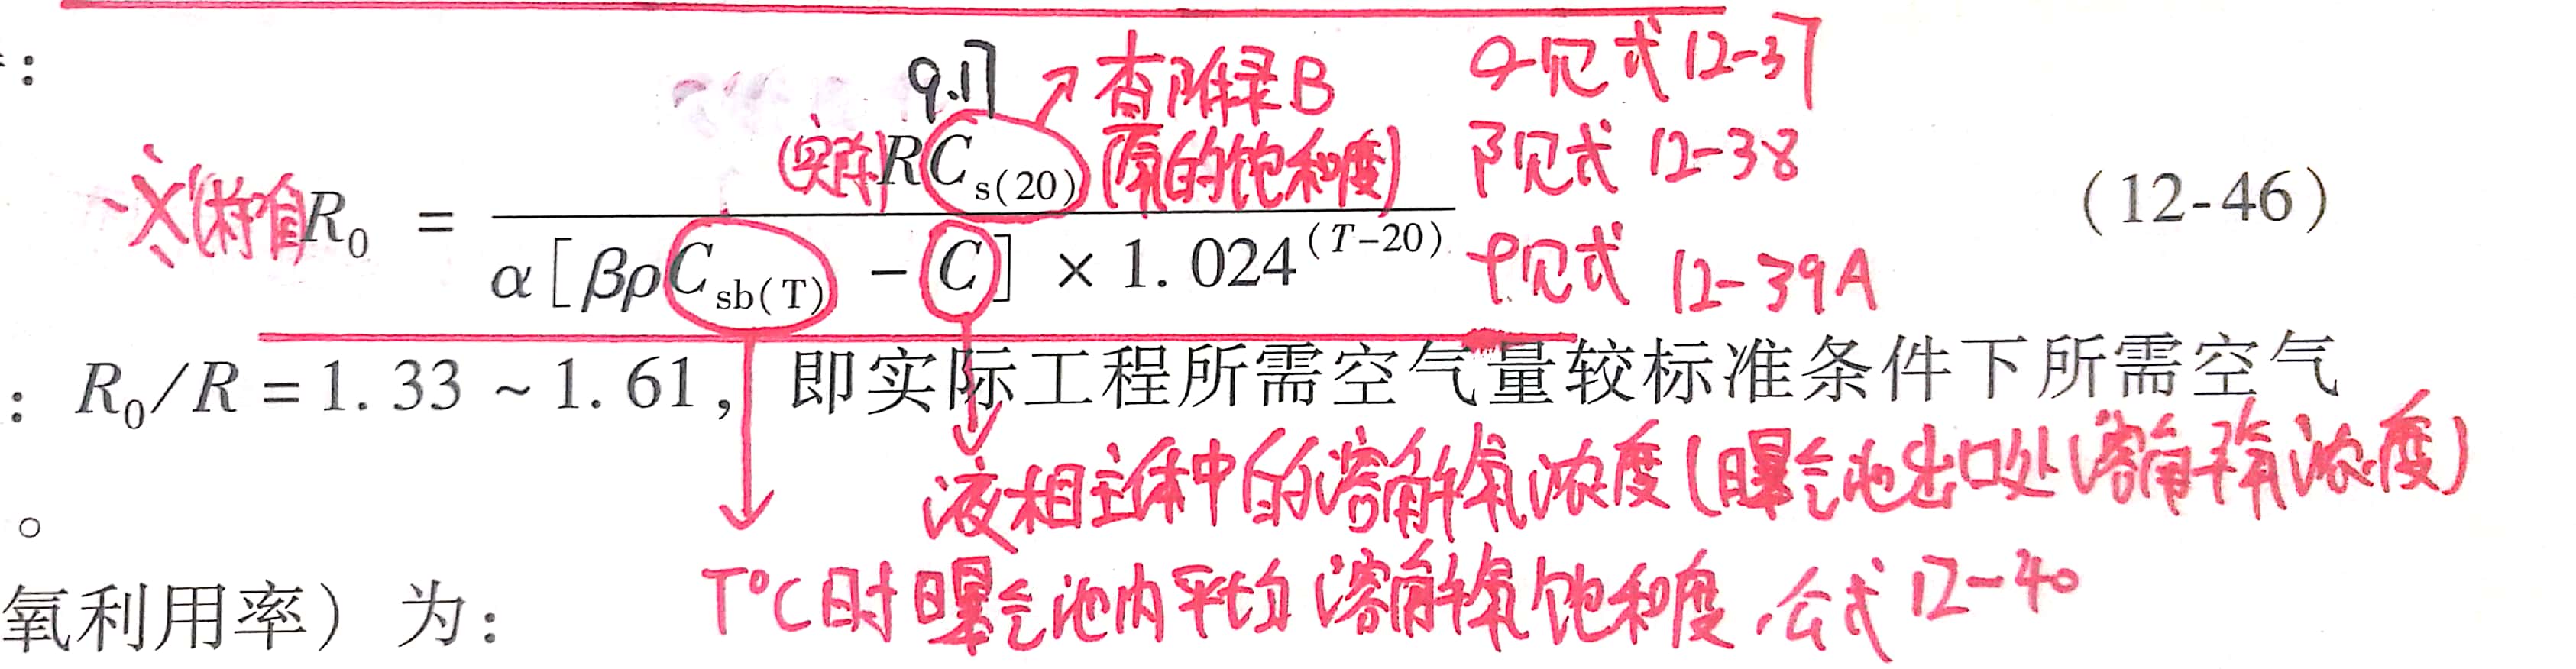 :
9.17 查附录B α见式12-37
(实际) RC_s(20) (氧的饱和度) β见式12-38
(标准) R_0 = ―――――――― (12-46)
α[βρC_sb(T) - C] × 1.024^(T-20) ρ见式12-39A
: R_0/R = 1.33 ~ 1.61, 即实际工程所需空气量较标准条件下所需空气
液相主体中的溶解氧浓度(曝气池出口处溶解氧浓度)
。
T℃时曝气池内平均溶解氧饱和度,公式12-40
氧利用率) 为: